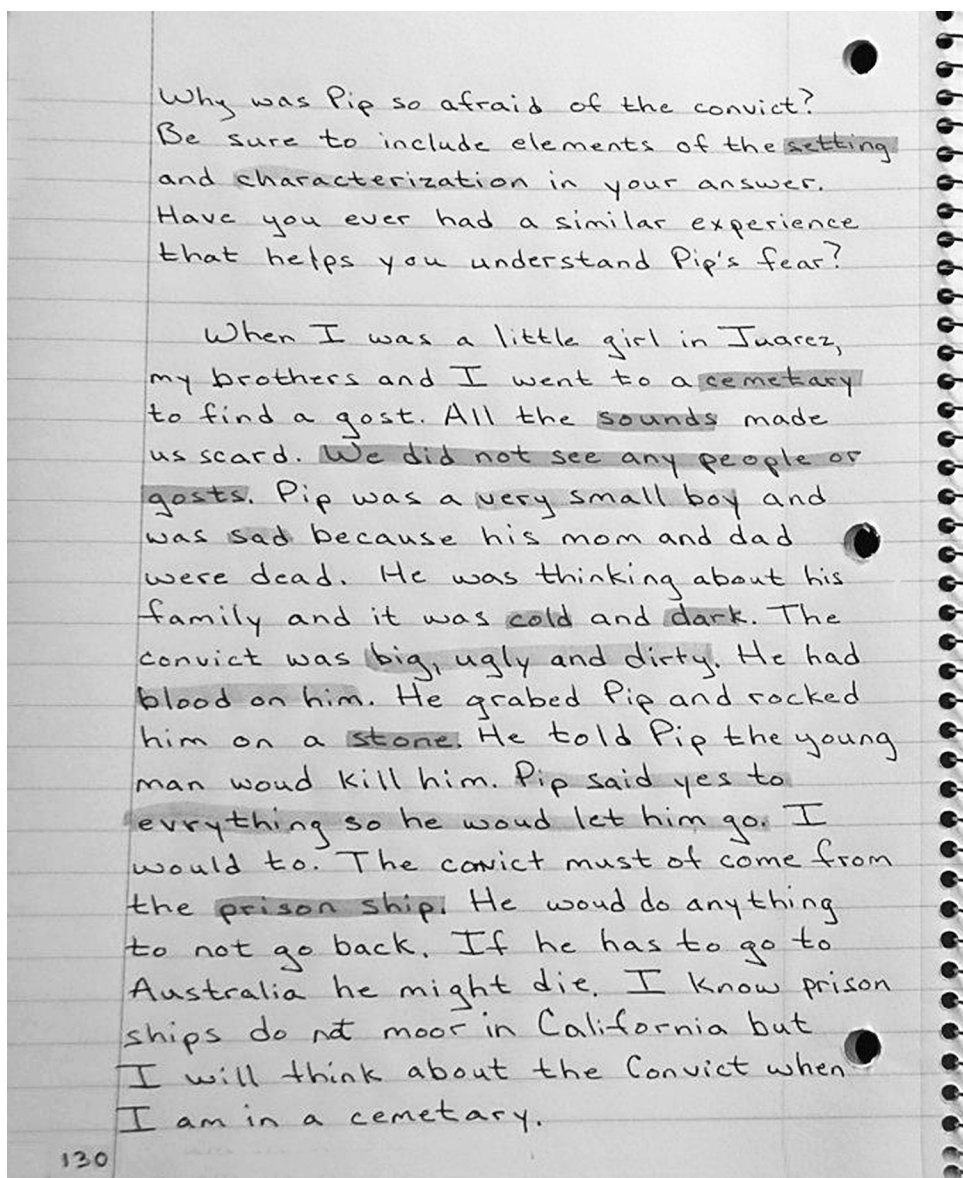 Why was Pip so afraid of the convict?
Be sure to include elements of the setting
and characterization in your answer.
Have you ever had a similar experience
that helps you understand Pip's fear?
When I was a little girl in Juarez,
my brothers and I went to a cemetary
to find a gost. All the sounds made
us scard. We did not see any people or
gosts. Pip was a very small boy and
was sad because his mom and dad
were dead. He was thinking about his
family and it was cold and dark. The
convict was big, ugly and dirty. He had
blood on him. He grabed Pip and rocked
him on a stone. He told Pip the young
man woud kill him. Pip said yes to
evrything so he woud let him go. I
would to. The convict must of come from
the prison ship. He woud do anything
to not go back. If he has to go to
Australia he might die. I know prison
ships do not moor in California but
I will think about the Convict when
I am in a cemetary.
130